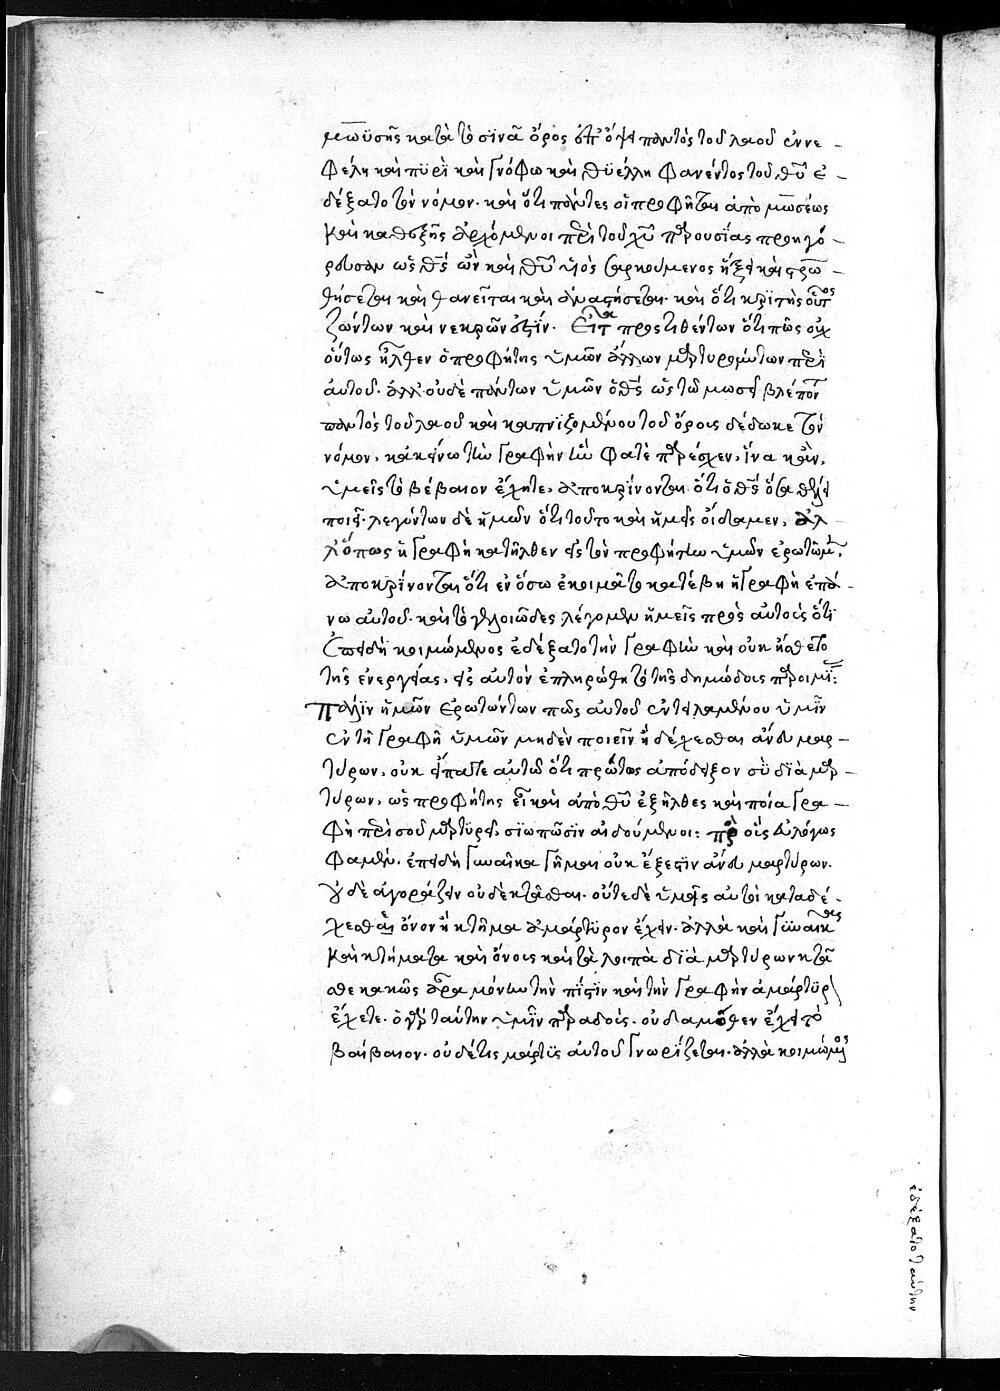 μωϋσῆς κατὰ τὸ σινᾶ ὄρος ἐπ' ὄψει παντὸς τοῦ λαοῦ ἐν νε
φέλη καὶ πϋρὶ καὶ γνόφω καὶ θϋέλλη φανέντος τοῦ θῦ ἐ
δέξατο τὸν νόμον· καὶ ὅτι πάντες οἱ προφῆται ἀπὸ μωσέως
καὶ καθεξῆς ἀρχόμενοι περὶ τοῦ χῦ παρουσίας προηγό
ρευσαν ὡς θς ὢν καὶ θῦ υἱὸς σαρκούμενος ἥξει καὶ στρω
θήσεται καὶ θανεῖται καὶ ἀναστήσεται· καὶ ὅτι κρϊτὴς οὗτος
ζώντων καὶ νεκρῶν ἐστϊν. Εἶτα προστιθέντων ὅτι πῶς οὐχ
οὕτως ἦλθεν ὁ προφήτης ὑμῶν ἄλλων μαρτυρούντων περὶ
αὐτοῦ· ἀλλ' οὐδὲ πάντων ὑμῶν ὁ θς ὡς τῶ μωσεῖ βλέποντ
παντὸς τοῦ λαοῦ καὶ καπνϊζομένου τοῦ ὄρους δέδωκε τὸν
νόμον, κἀκείνω τὴν γραφὴν ἣν φατὲ παρέσχεν, ἵνα κἂν,
ὑμεῖς τὸ βέβαιον ἔχητε, ἀποκρίνονται ὅτι ὁ θς ὅσα θέλει
ποιεῖ· λεγόντων δὲ ἡμῶν ὅτι τοῦτο καὶ ἡμεῖς οἴδαμεν, ἀλ
λ' ὅπως ἡ γραφὴ κατῆλθεν εἰς τὸν προφήτην ὑμῶν ἐρωτῶμεν,
ἀποκρίνονται ὅτι ἐν ὅσω ἐκοιμᾶτο κατέβη ἡ γραφὴ ἐπά
νω αὐτοῦ· καὶ τὸ γελοιῶδες λέγομεν ἡμεῖς πρὸς αὐτοὺς ὅτϊ
ἐπειδὴ κοιμώμενος ἐδέξατο τὴν γραφὴν καὶ οὐκ ἤσθετο
τῆς ἐνεργείας, εἰς αὐτὸν ἐπληρώθη τὸ τῆς δημώδους παροιμί:
Πάλϊν ἡμῶν ἐρωτώντων πῶς αὐτοῦ ἐντειλαμένου ὑμῖν
ἐν τῆ γραφῆ ὑμῶν μηδὲν ποιεῖν ἢ δέχεσθαι ἄνευ μαρ
τύρων, οὐκ εἴπατε αὐτῶ ὅτι πρῶτος ἀπόδειξον σὺ δϊὰ μαρ
τύρων, ὡς προφήτης εἶ καὶ ἀπὸ θῦ ἐξῆλθες καὶ ποία γρα
φὴ περὶ σοῦ μαρτϋρεῖ, σϊωπῶσϊν αἰδούμενοι: πρὸς οὓς εὐλόγως
φαμὲν, ἐπειδὴ γυναῖκα γῆμαι οὐκ ἔξεστϊν ἄνευ μαρτύρων.
οὐδὲ ἀγοράζειν οὐδὲ κτᾶσθαι· οὔτε δὲ ὑμεῖς αὐτοὶ καταδέ
χεσθαι ὄνον ἢ κτῆμα ἀμάρτϋρον ἔχειν· ἀλλὰ καὶ γϋναῖκας
καὶ κτήματα καὶ ὄνους καὶ τὰ λοιπὰ δϊὰ μαρτύρων κτᾶ
σθε κακῶς ἄρα μόνην τὴν πίστϊν καὶ τὴν γραφὴν ἀμάρτϋρ
ἔχετε. ὁ γὰρ ταύτην ὑμῖν παραδοὺς. οὐδαμόθεν ἔχει τὸ
βαίβαιον· οὐδέ τις μάρτϋς αὐτοῦ γνωρίζεται· ἀλλὰ κοιμώμενος
ἐδέξατο ταύτην